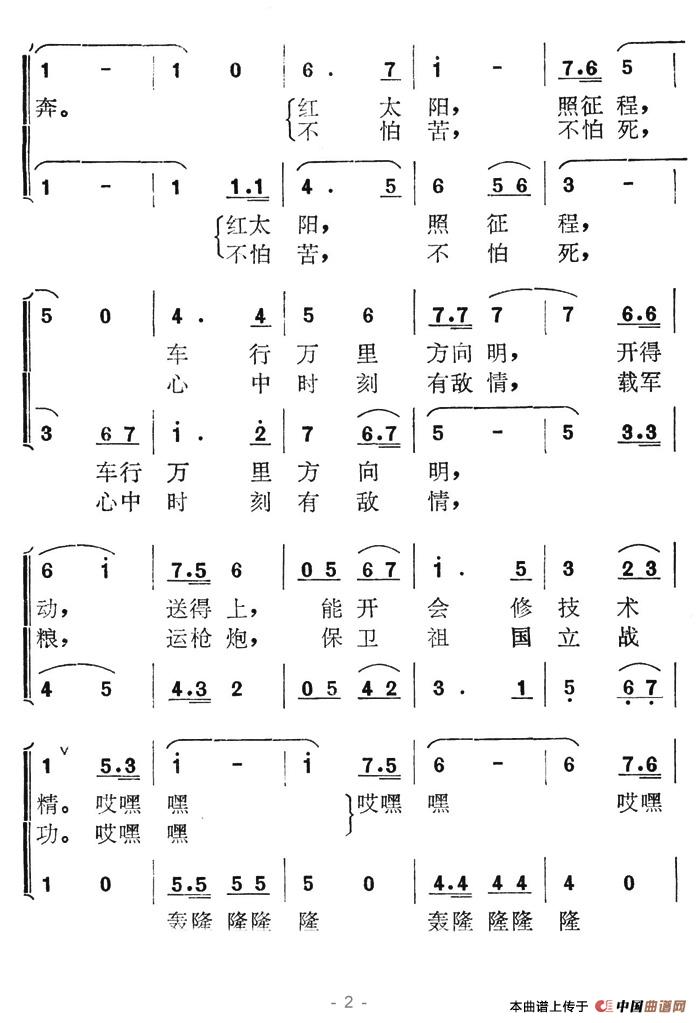 1 - | 1 0 | 6 . 7 | i - | 7.6 5 |
奔。 红 太 阳， 照征 程，
不 怕 苦， 不怕 死，
1 - | 1 1.1 | 4 . 5 | 6 5 6 | 3 - |
红太 阳， 照 征 程，
不怕 苦， 不 怕 死，
5 0 | 4 . 4 | 5 6 | 7.7 7 | 7 6.6 |
车 行 万 里 方向 明， 开得
心 中 时 刻 有敌 情， 载军
3 6 7 | i . 2 | 7 6.7 | 5 - | 5 3.3 |
车行 万 里 方 向 明，
心中 时 刻 有 敌 情，
6 i | 7.5 6 | 0 5 6 7 | i . 5 | 3 2 3 |
动， 送得 上， 能 开 会 修 技 术
粮， 运枪 炮， 保 卫 祖 国 立 战
4 5 | 4.3 2 | 0 5 4 2 | 3 . 1 | 5 6 7 |
1 ∨ 5.3 | i - | i 7.5 | 6 - | 6 7.6 |
精。 哎嘿 嘿 哎嘿 嘿 哎嘿
功。 哎嘿 嘿
1 0 | 5.5 5 5 | 5 0 | 4.4 4 4 | 4 0 |
轰隆 隆隆 隆 轰隆 隆隆 隆
- 2 -
本曲谱上传于 中国曲谱网